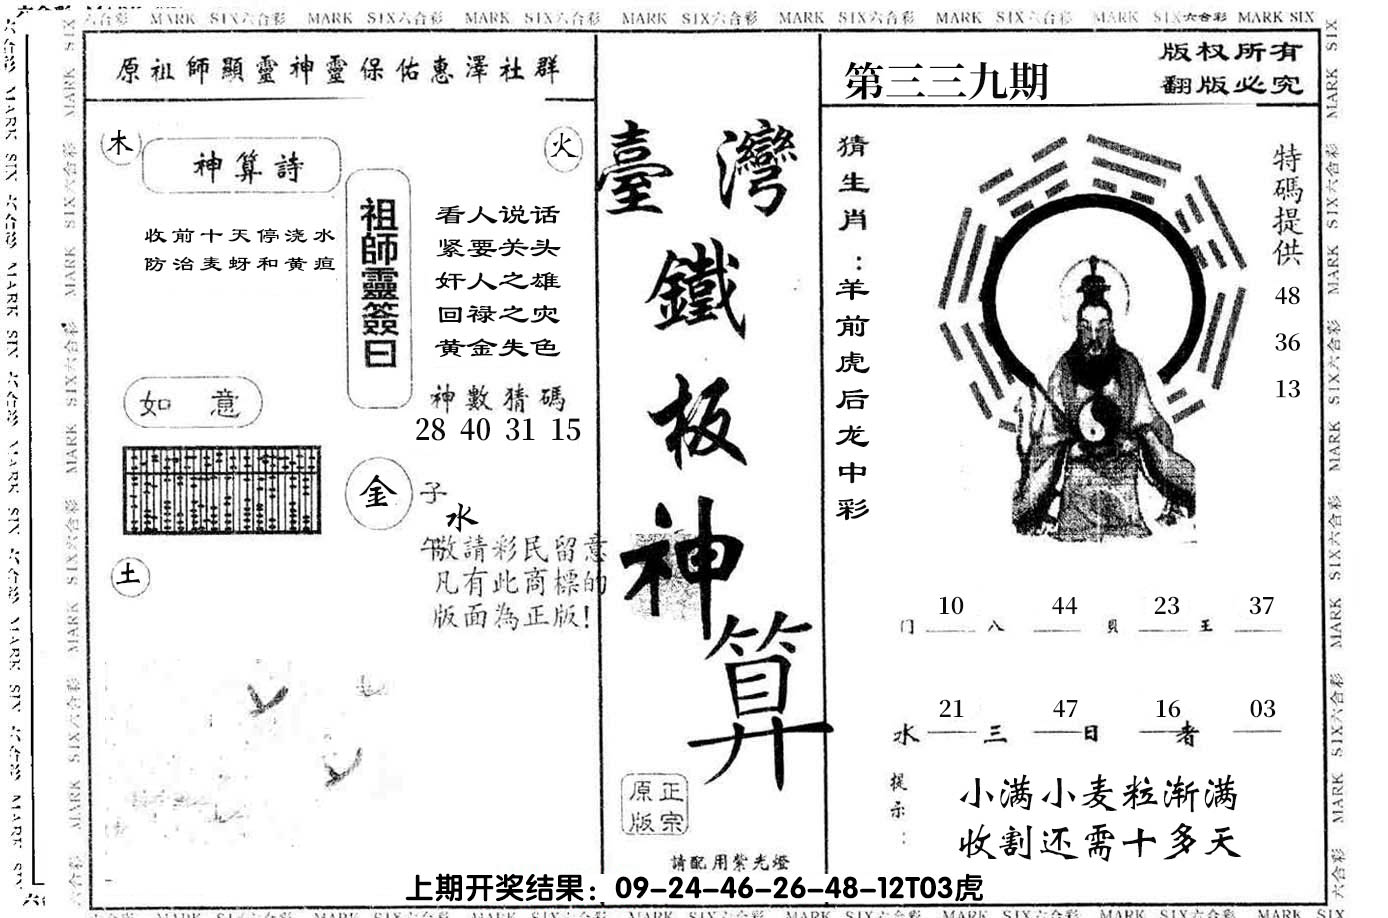 MARK SIX六合彩 MARK SIX六合彩 MARK SIX六合彩 MARK SIX六合彩 MARK SIX六合彩 MARK SIX六合彩 MARK SIX六合彩 MARK SIX
原祖師顯靈神靈保佑惠澤社群
木
火
神算詩
收前十天停浇水
防治麦蚜和黄疸
祖師靈簽曰
看人说话
紧要关头
奸人之雄
回禄之灾
黄金失色
神數猜碼
28 40 31 15
如意
金
子
水
午
土
敬請彩民留意
凡有此商標的
版面為正版!
臺灣
鐵板神算
正宗
原版
請配用紫光燈
第三三九期
版权所有
翻版必究
猜生肖：羊前虎后龙中彩
特碼提供
48
36
13
10 44 23 37
门 八 貝 王
21 47 16 03
水 三 日 者
提示：
小满小麦粒渐满
收割还需十多天
上期开奖结果：09-24-46-26-48-12T03虎